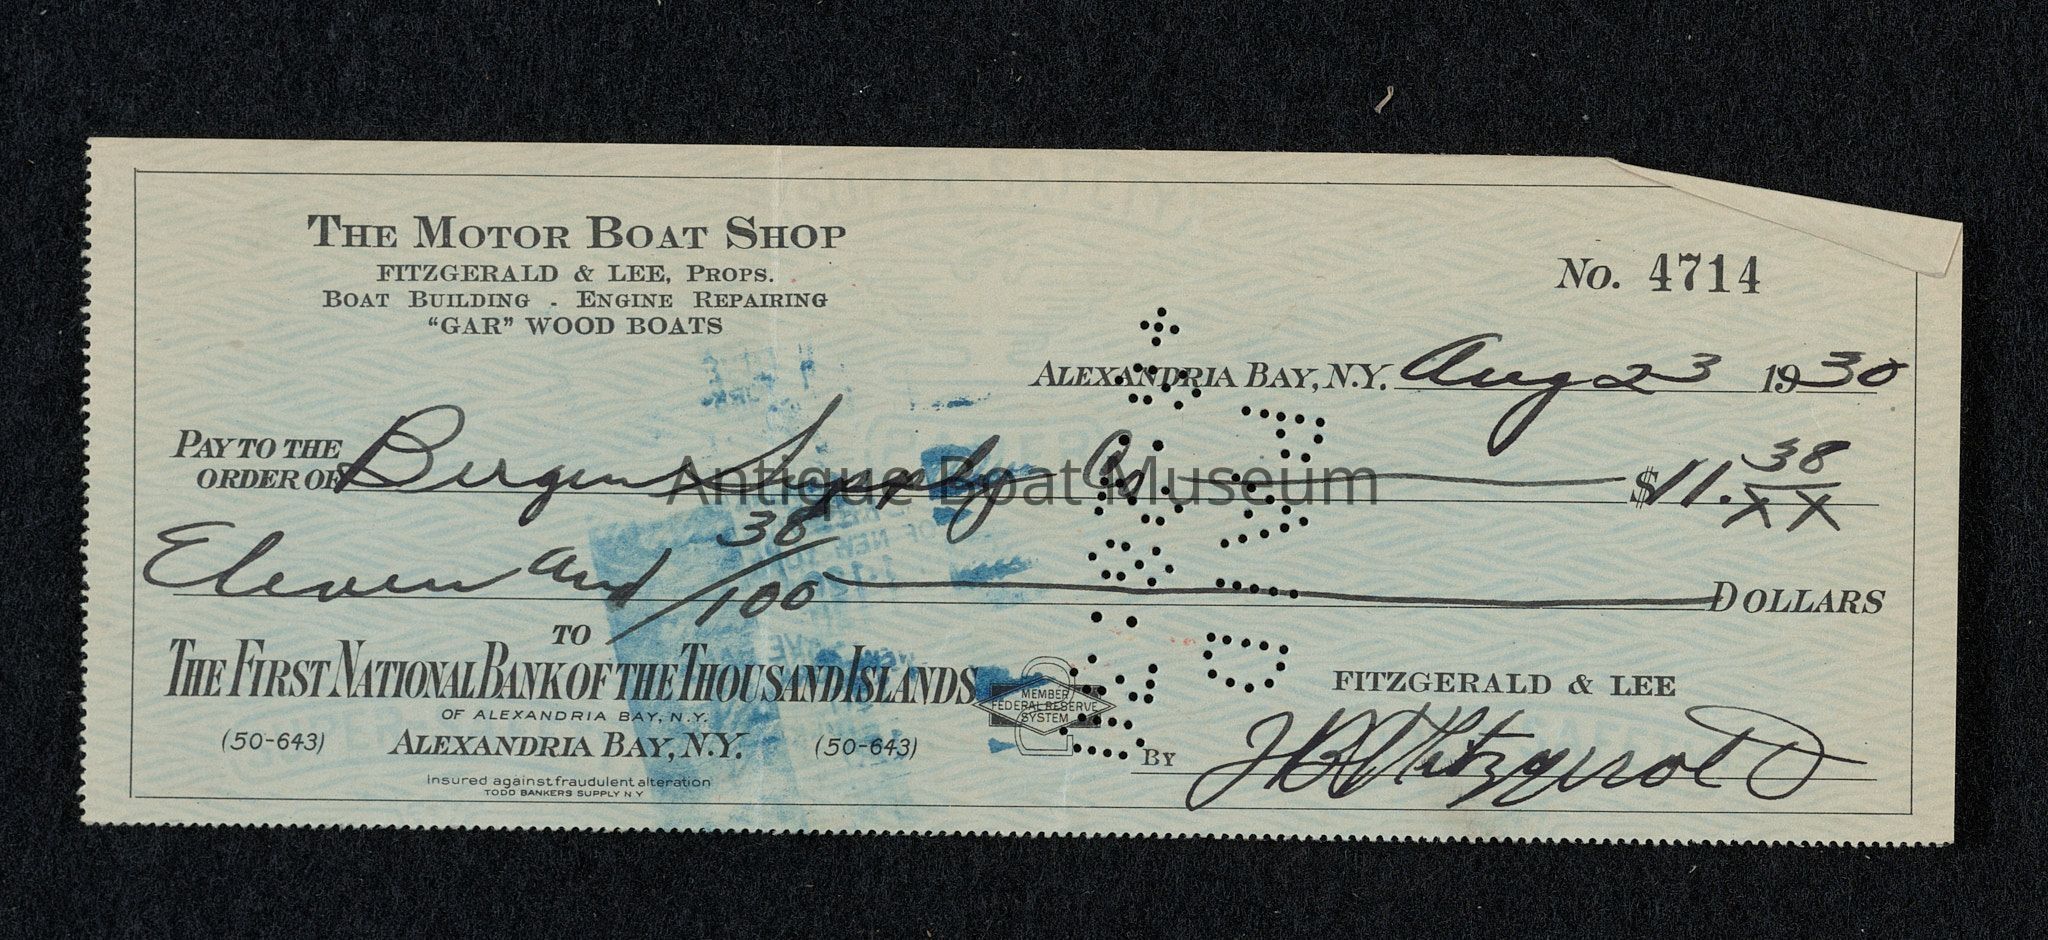 THE MOTOR BOAT SHOP
FITZGERALD & LEE, PROPS.
BOAT BUILDING - ENGINE REPAIRING
"GAR" WOOD BOATS
No. 4714
ALEXANDRIA BAY, N.Y. Aug 23 1930
PAY TO THE
ORDER OF Bergen Supply Co $11. 38/XX
Antique Boat Museum
Eleven and 38/100 DOLLARS
TO
THE FIRST NATIONAL BANK OF THE THOUSAND ISLANDS
OF ALEXANDRIA BAY, N.Y.
(50-643) ALEXANDRIA BAY, N.Y. (50-643)
Insured against fraudulent alteration
TODD BANKERS SUPPLY N Y
MEMBER
FEDERAL RESERVE
SYSTEM
FITZGERALD & LEE
BY J B Fitzgerald